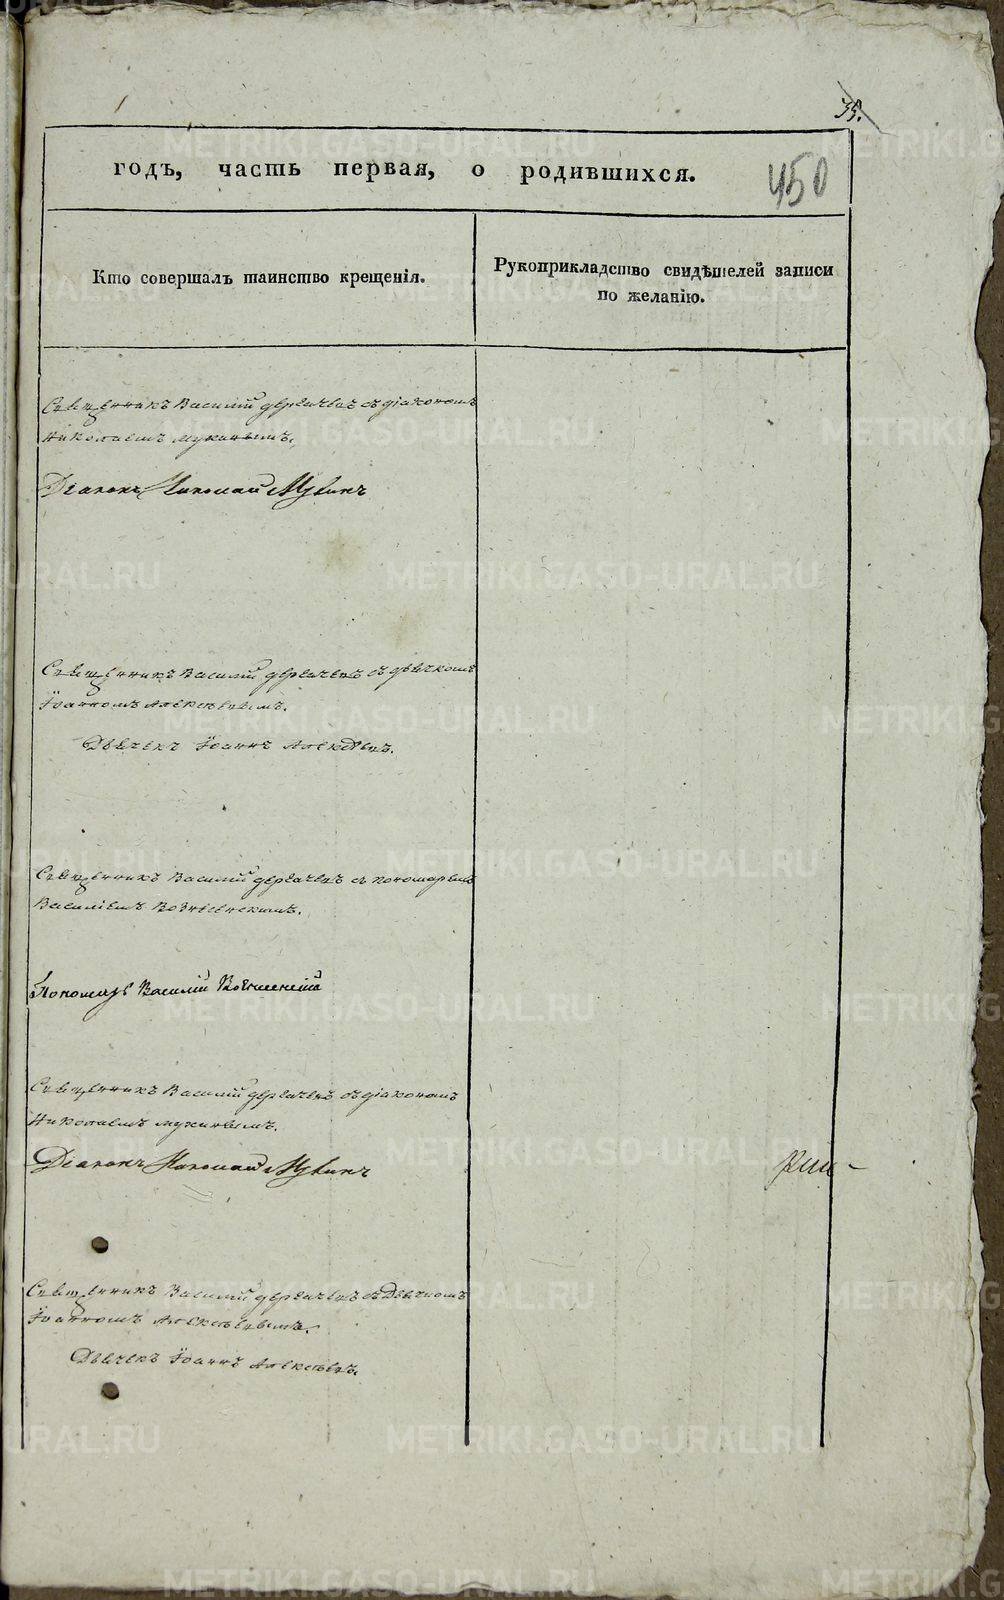 35.
450
годъ, часть первая, о родившихся.
Кто совершалъ таинство крещенія.
Рукоприкладство свидѣтелей записи
по желанію.
Священникъ Василий съ діакономъ
Николаемъ Мукинымъ.
Діаконъ Николай Мукинъ
Священникъ Василий съ дьячкомъ
Іоанномъ Алексѣевымъ.
Дьячекъ Іоаннъ Алексѣевъ.
Священникъ Василий съ пономаремъ
Василіемъ Вознесенскимъ.
Пономарь Василій Вознесенскій
Священникъ Василий съ діакономъ
Николаемъ Мукинымъ.
Діаконъ Николай Мукинъ
Священникъ Василий съ Дьячкомъ
Іоанномъ Алексѣевымъ.
Дьячекъ Іоаннъ Алексѣевъ.
METRIKI.GASO-URAL.RU